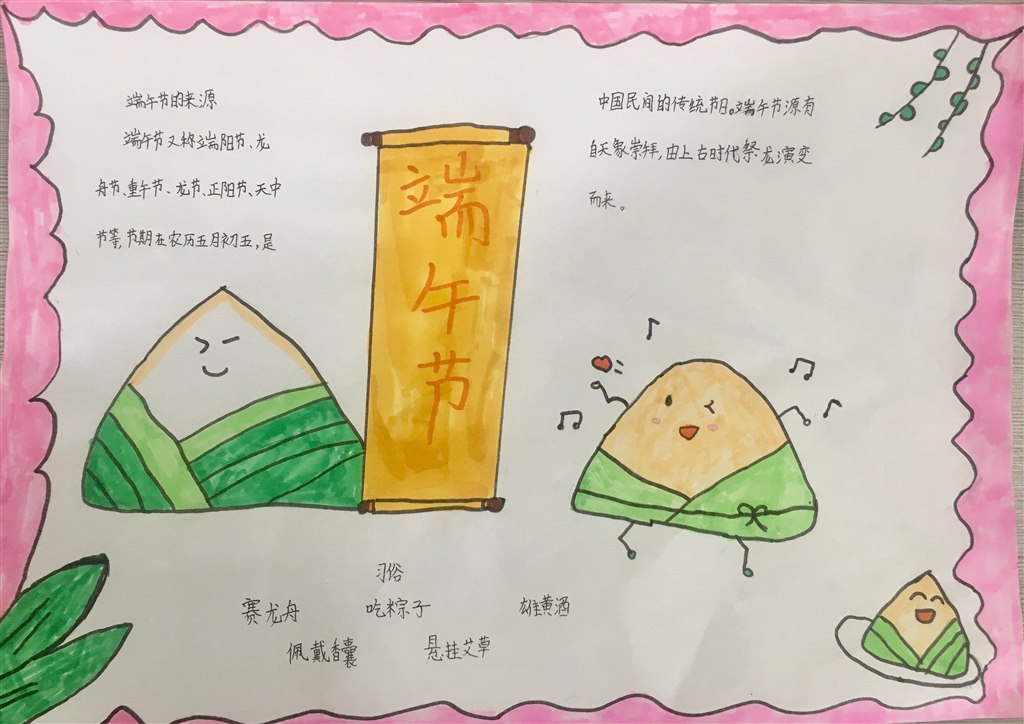 端午节的来源
端午节又称端阳节、龙
舟节、重午节、龙节、正阳节、天中
节等,节期在农历五月初五,是
端午节
中国民间的传统节日。端午节源有
自天象崇拜,由上古时代祭龙演变
而来。
习俗
赛龙舟 吃粽子 雄黄酒
佩戴香囊 悬挂艾草